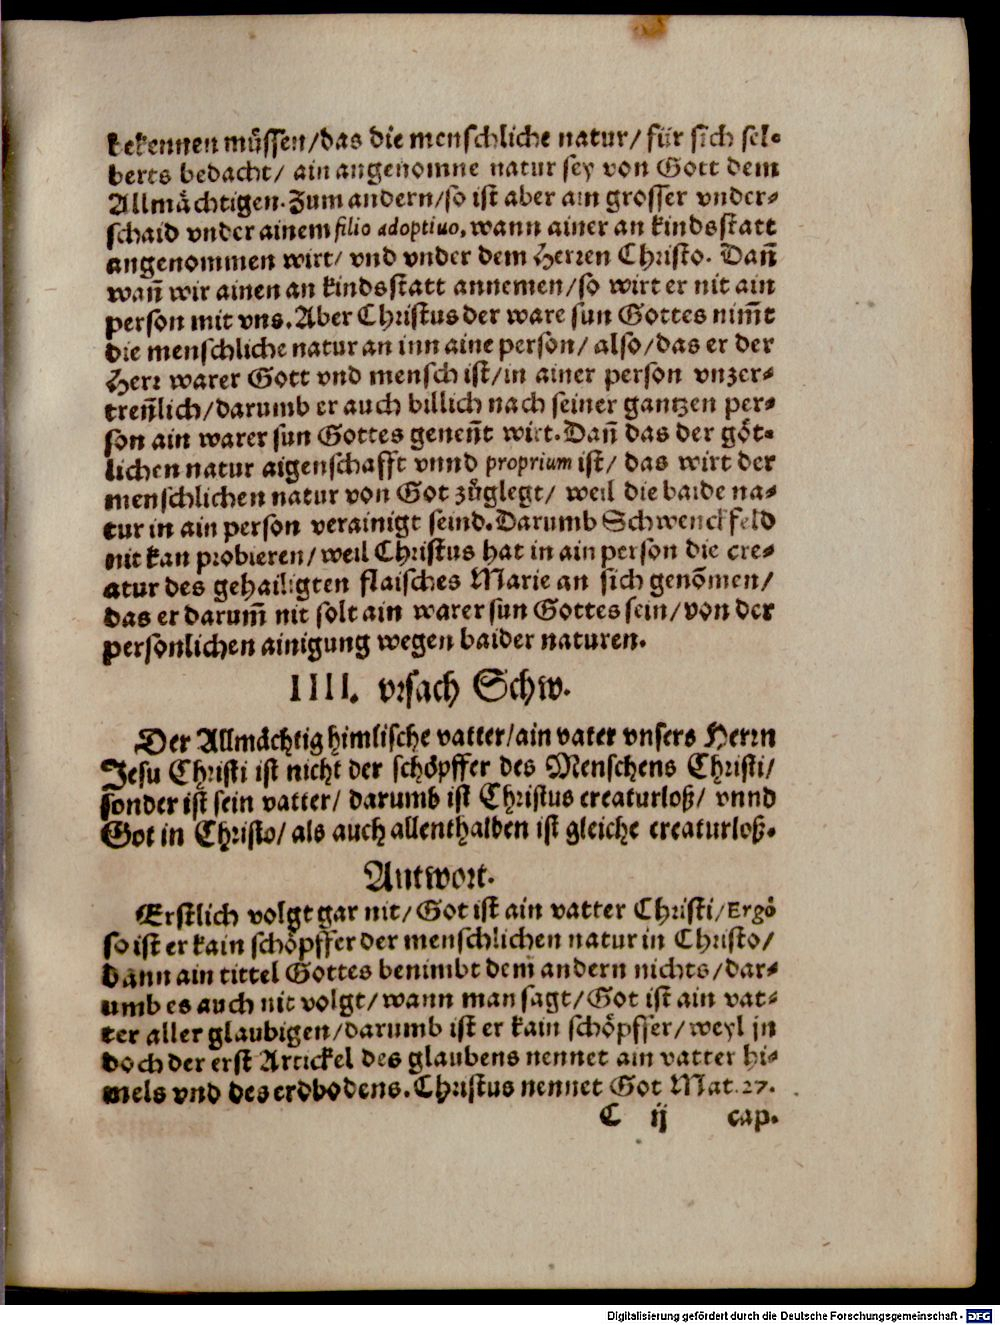 bekennen müssen/das die menschliche natur/ für sich sel-
berts bedacht/ ain angenomne natur sey von Gott dem
Allmächtigen. Zum andern/so ist aber ain grosser vnder-
schaid vnder ainem filio adoptiuo, wann ainer an kindsstatt
angenommen wirt/ vnd vnder dem Herren Christo. Dañ
wañ wir ainen an kindsstatt annemen/so wirt er nit ain
person mit vns. Aber Christus der ware sun Gottes nim̃t
die menschliche natur an inn aine person/ also/das er der
Herr warer Gott vnd mensch ist/in ainer person vnzer-
treñlich/darumb er auch billich nach seiner gantzen per-
son ain warer sun Gottes geneñt wirt. Dañ das der göt-
lichen natur aigenschafft vnnd proprium ist/ das wirt der
menschlichen natur von Got zůglegt/ weil die baide na-
tur in ain person verainigt seind. Darumb Schwenckfeld
nit kan probieren/ weil Christus hat in ain person die cre-
atur des gehailigten flaisches Marie an sich genõmen/
das er darum̃ nit solt ain warer sun Gottes sein/ von der
personlichen ainigung wegen baider naturen.
IIII. vrsach Schw.
Der Allmächtig himlische vatter/ain vater vnsers Herrn
Jesu Christi ist nicht der schöpffer des Menschens Christi/
sonder ist sein vatter/ darumb ist Christus creaturloß/ vnnd
Got in Christo/ als auch allenthalben ist gleiche creaturloß.
Antwort.
Erstlich volgt gar nit/ Got ist ain vatter Christi/ Ergô
so ist er kain schöpffer der menschlichen natur in Christo/
Dann ain tittel Gottes benimbt dem andern nichts/ dar-
umb es auch nit volgt/ wann man sagt/ Got ist ain vat-
ter aller glaubigen/darumb ist er kain schöpffer/ weyl jn
doch der erst Artickel des glaubens nennet ain vatter hi-
mels vnd des erdbodens. Christus nennet Got Mat. 27.
C ij cap.
Digitalisierung gefördert durch die Deutsche Forschungsgemeinschaft - DFG